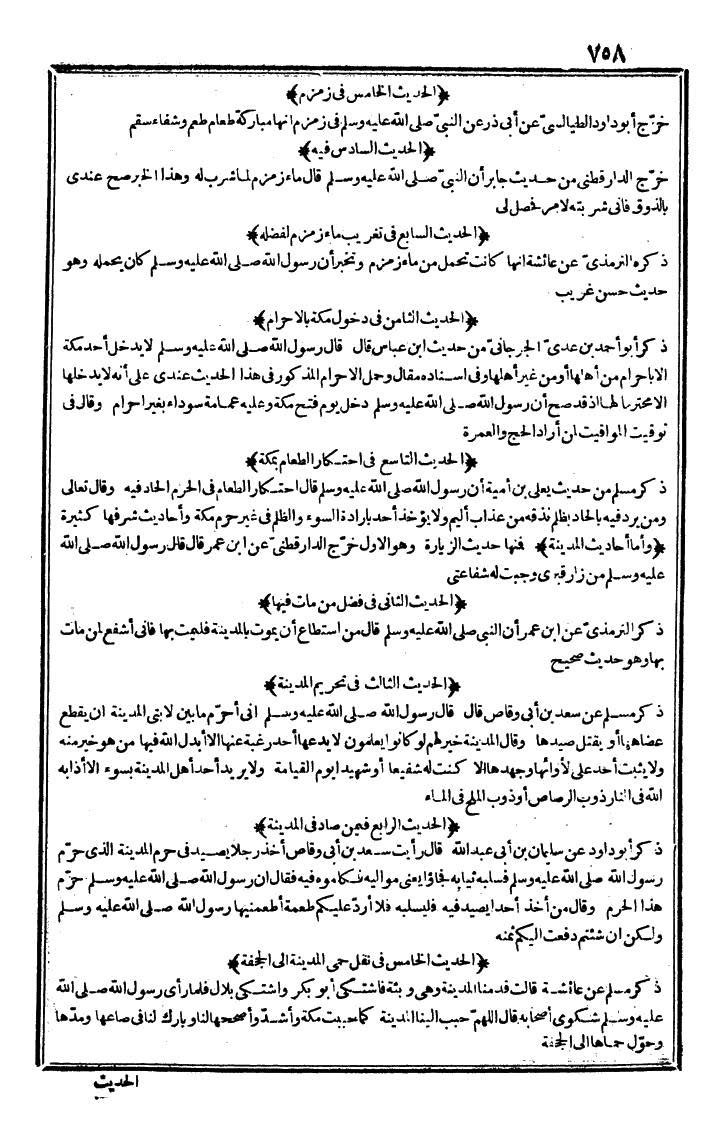 ٧٥٨
﴿الحديث الخامس فى زمزم﴾
خرّج أبو داود الطيالسىّ عن أبى ذر عن النبىّ صلى الله عليه وسلم فى زمزم انها مباركة طعام طعم وشفاء سقم
﴿الحديث السادس فيه﴾
خرّج الدارقطنى من حديث جابر أن النبىّ صلى الله عليه وسلم قال ماء زمزم لما شرب له وهذا الخبر صح عندى
بالذوق فانى شربته لامر فحصل لى
﴿الحديث السابع فى تغريب ماء زمزم لفضله﴾
ذكره الترمذىّ عن عائشة انها كانت تحمل من ماء زمزم وتخبر أن رسول الله صلى الله عليه وسلم كان يحمله وهو
حديث حسن غريب
﴿الحديث الثامن فى دخول مكة بالاحرام﴾
ذكر أبو أحمد بن عدىّ الجرجانىّ من حديث ابن عباس قال قال رسول الله صلى الله عليه وسلم لا يدخل أحد مكة
الا باحرام من أهلها أو من غير أهلها وفى اسناده مقال وحمل الاحرام المذكور فى هذا الحديث عندى على أنه لا يدخلها
الا محترما لها اذ قد صح أن رسول الله صلى الله عليه وسلم دخل يوم فتح مكة وعليه عمامة سوداء بغير احرام وقال فى
توقيت المواقيت لمن أراد الحج والعمرة
﴿الحديث التاسع فى احتكار الطعام بمكة﴾
ذكر مسلم من حديث يعلى بن أمية أن رسول الله صلى الله عليه وسلم قال احتكار الطعام فى الحرم الحاد فيه وقال تعالى
ومن يرد فيه بالحاد بظلم نذقه من عذاب أليم ولا يؤخذ أحد بارادة السوء والظلم فى غير حرم مكة وأحاديث شرفها كثيرة
﴿وأما أحاديث المدينة﴾ فمنها حديث الزيارة وهو الاول خرّج الدارقطنىّ عن ابن عمر قال قال رسول الله صلى الله
عليه وسلم من زار قبرى وجبت له شفاعتى
﴿الحديث الثانى فى فضل من مات فيها﴾
ذكر الترمذىّ عن ابن عمر أن النبى صلى الله عليه وسلم قال من استطاع أن يموت بالمدينة فليمت بها فانى أشفع لمن مات
بها وهو حديث صحيح
﴿الحديث الثالث فى تحريم المدينة﴾
ذكر مسلم عن سعد بن أبى وقاص قال قال رسول الله صلى الله عليه وسلم انى أحرّم ما بين لابتى المدينة ان يقطع
عضاهها أو يقتل صيدها وقال المدينة خير لهم لو كانوا يعلمون لا يدعها أحد رغبة عنها الا أبدل الله فيها من هو خير منه
ولا يثبت أحد على لأوائها وجهدها الا كنت له شفيعا أو شهيدا يوم القيامة ولا يريد أحد أهل المدينة بسوء الا أذابه
الله فى النار ذوب الرصاص أو ذوب الملح فى الماء
﴿الحديث الرابع فيمن صاد فى المدينة﴾
ذكر أبو داود عن سليمان بن أبى عبد الله قال رأيت سعد بن أبى وقاص أخذ رجلا يصيد فى حرم المدينة الذى حرّم
رسول الله صلى الله عليه وسلم فسلبه ثيابه فجاؤا يعنى مواليه فكلموه فيه فقال ان رسول الله صلى الله عليه وسلم حرّم
هذا الحرم وقال من أخذ أحدا يصيد فيه فليسلبه فلا أردّ عليكم طعمة أطعمنيها رسول الله صلى الله عليه وسلم
ولكن ان شئتم دفعت اليكم ثمنه
﴿الحديث الخامس فى نقل حمى المدينة الى الجحفة﴾
ذكر مسلم عن عائشة قالت قدمنا المدينة وهى وبئة فاشتكى أبو بكر واشتكى بلال فلما رأى رسول الله صلى الله
عليه وسلم شكوى أصحابه قال اللهمّ حبب الينا المدينة كما حببت مكة وأشدّ وأصححها لنا وبارك لنا فى صاعها ومدّها
وحوّل حماها الى الجحفة
الحديث